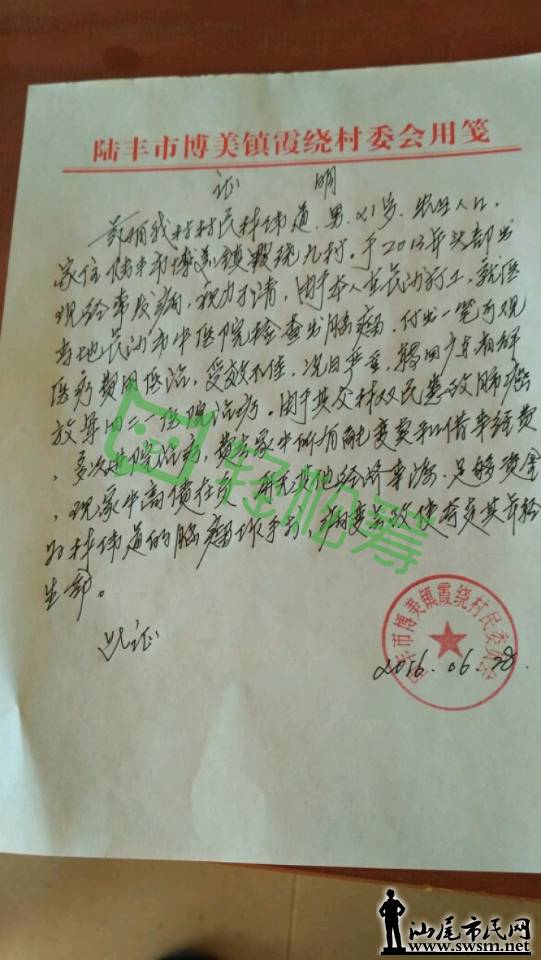 陆丰市博美镇霞绕村委会用笺
证 明
兹有我村村民林伟道、男、21岁、
家住陆丰市博美镇霞绕九村。于2013年头部出
现经常发痛,视力不清,由于本人在长沙打工,就医
当地长沙市中医院检查出脑瘤,付出一笔可观
医疗费用医治,受效不佳,况日严重,转回广东
放军四二一医院治疗。由于其父林双民患肺癌
、多次进院治疗,费去家中所有能变卖和借来经费
、现家中高债在身,再无其他经济来源,足够资金
为林伟道的脑瘤作手术,
生命。
此证
2016.06.28
陆丰市博美镇霞绕村民委员会
轻松筹
汕尾市民网
www.swsm.net